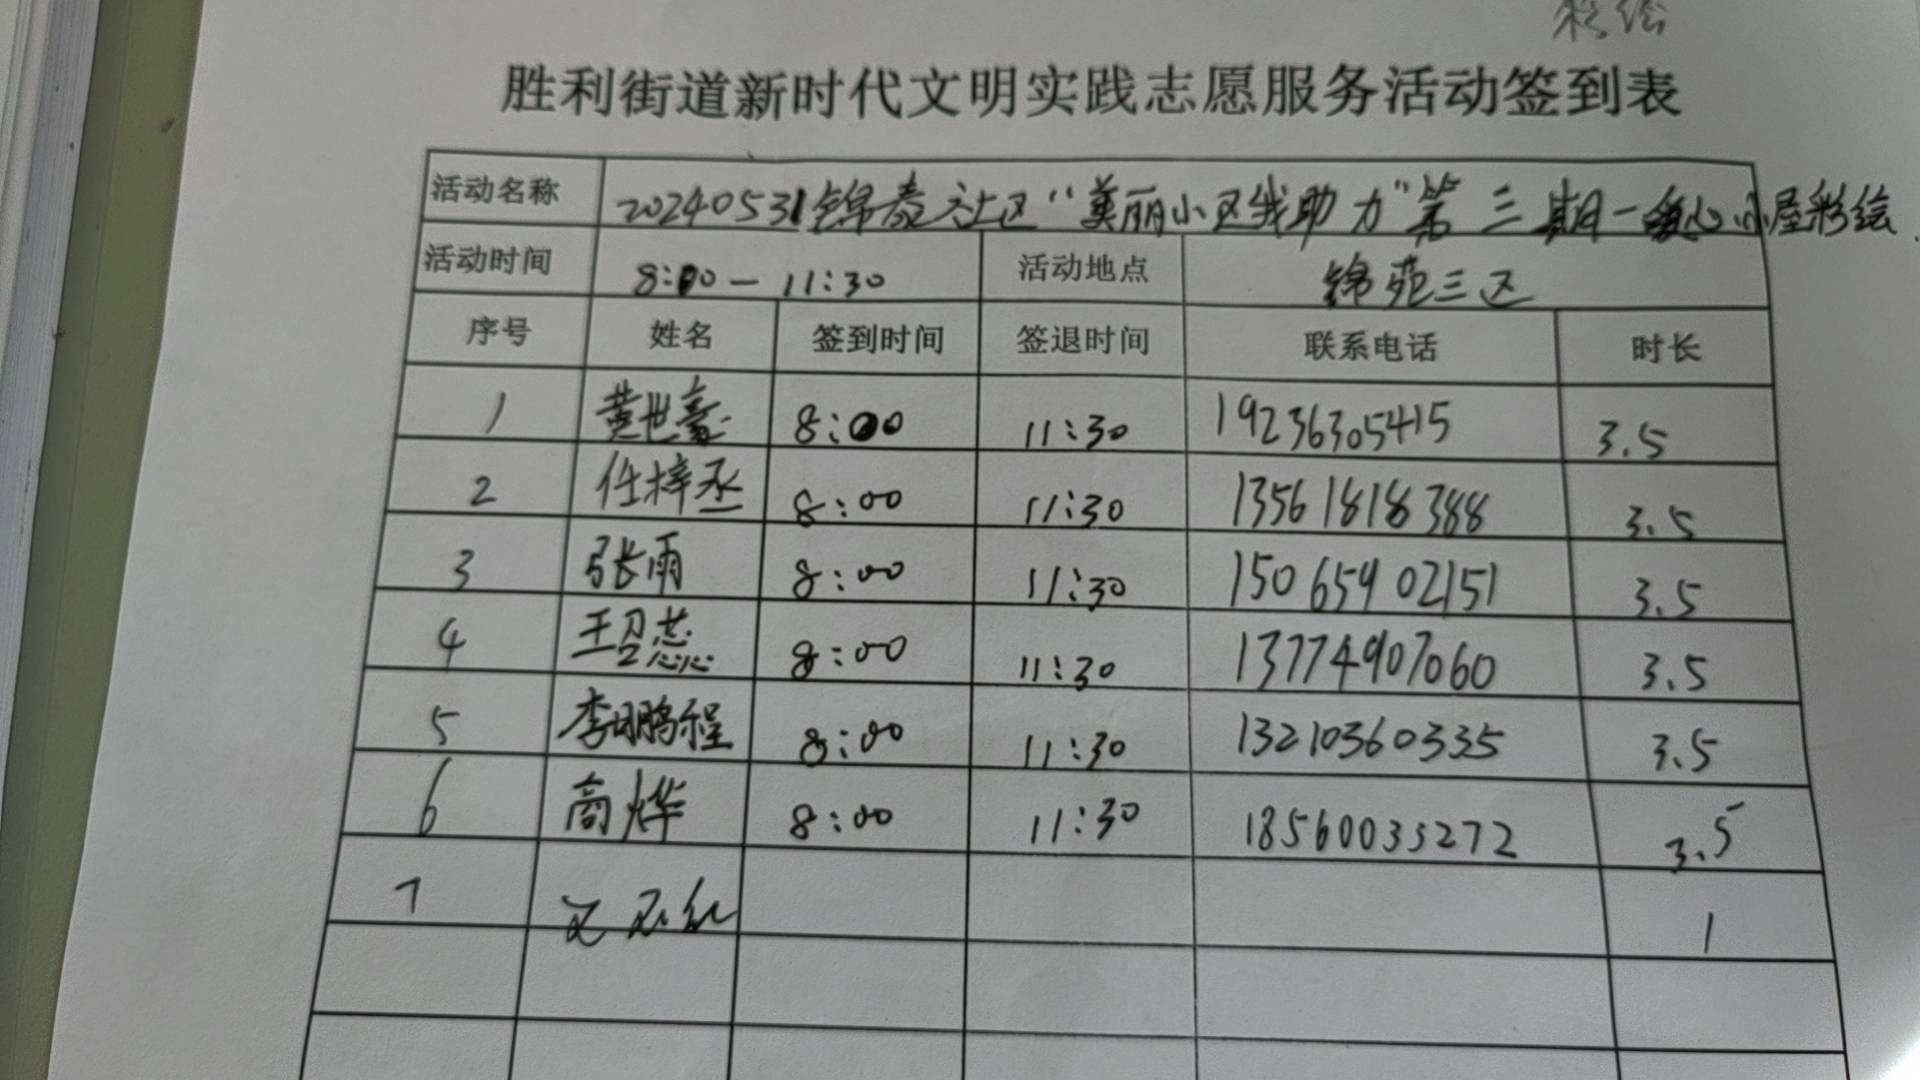 彩绘
胜利街道新时代文明实践志愿服务活动签到表
活动名称 20240531锦泰社区“美丽小区我助力”第三期一暖心小屋彩绘
活动时间 8:00—11:30 活动地点 锦苑三区
序号 姓名 签到时间 签退时间 联系电话 时长
1 黄世豪 8:00 11:30 19236305415 3.5
2 任梓丞 8:00 11:30 13561818388 3.5
3 张雨 8:00 11:30 15065902151 3.5
4 王召蕊 8:00 11:30 13774907060 3.5
5 李鹏程 8:00 11:30 13210360335 3.5
6 高烨 8:00 11:30 18560033272 3.5
7 1